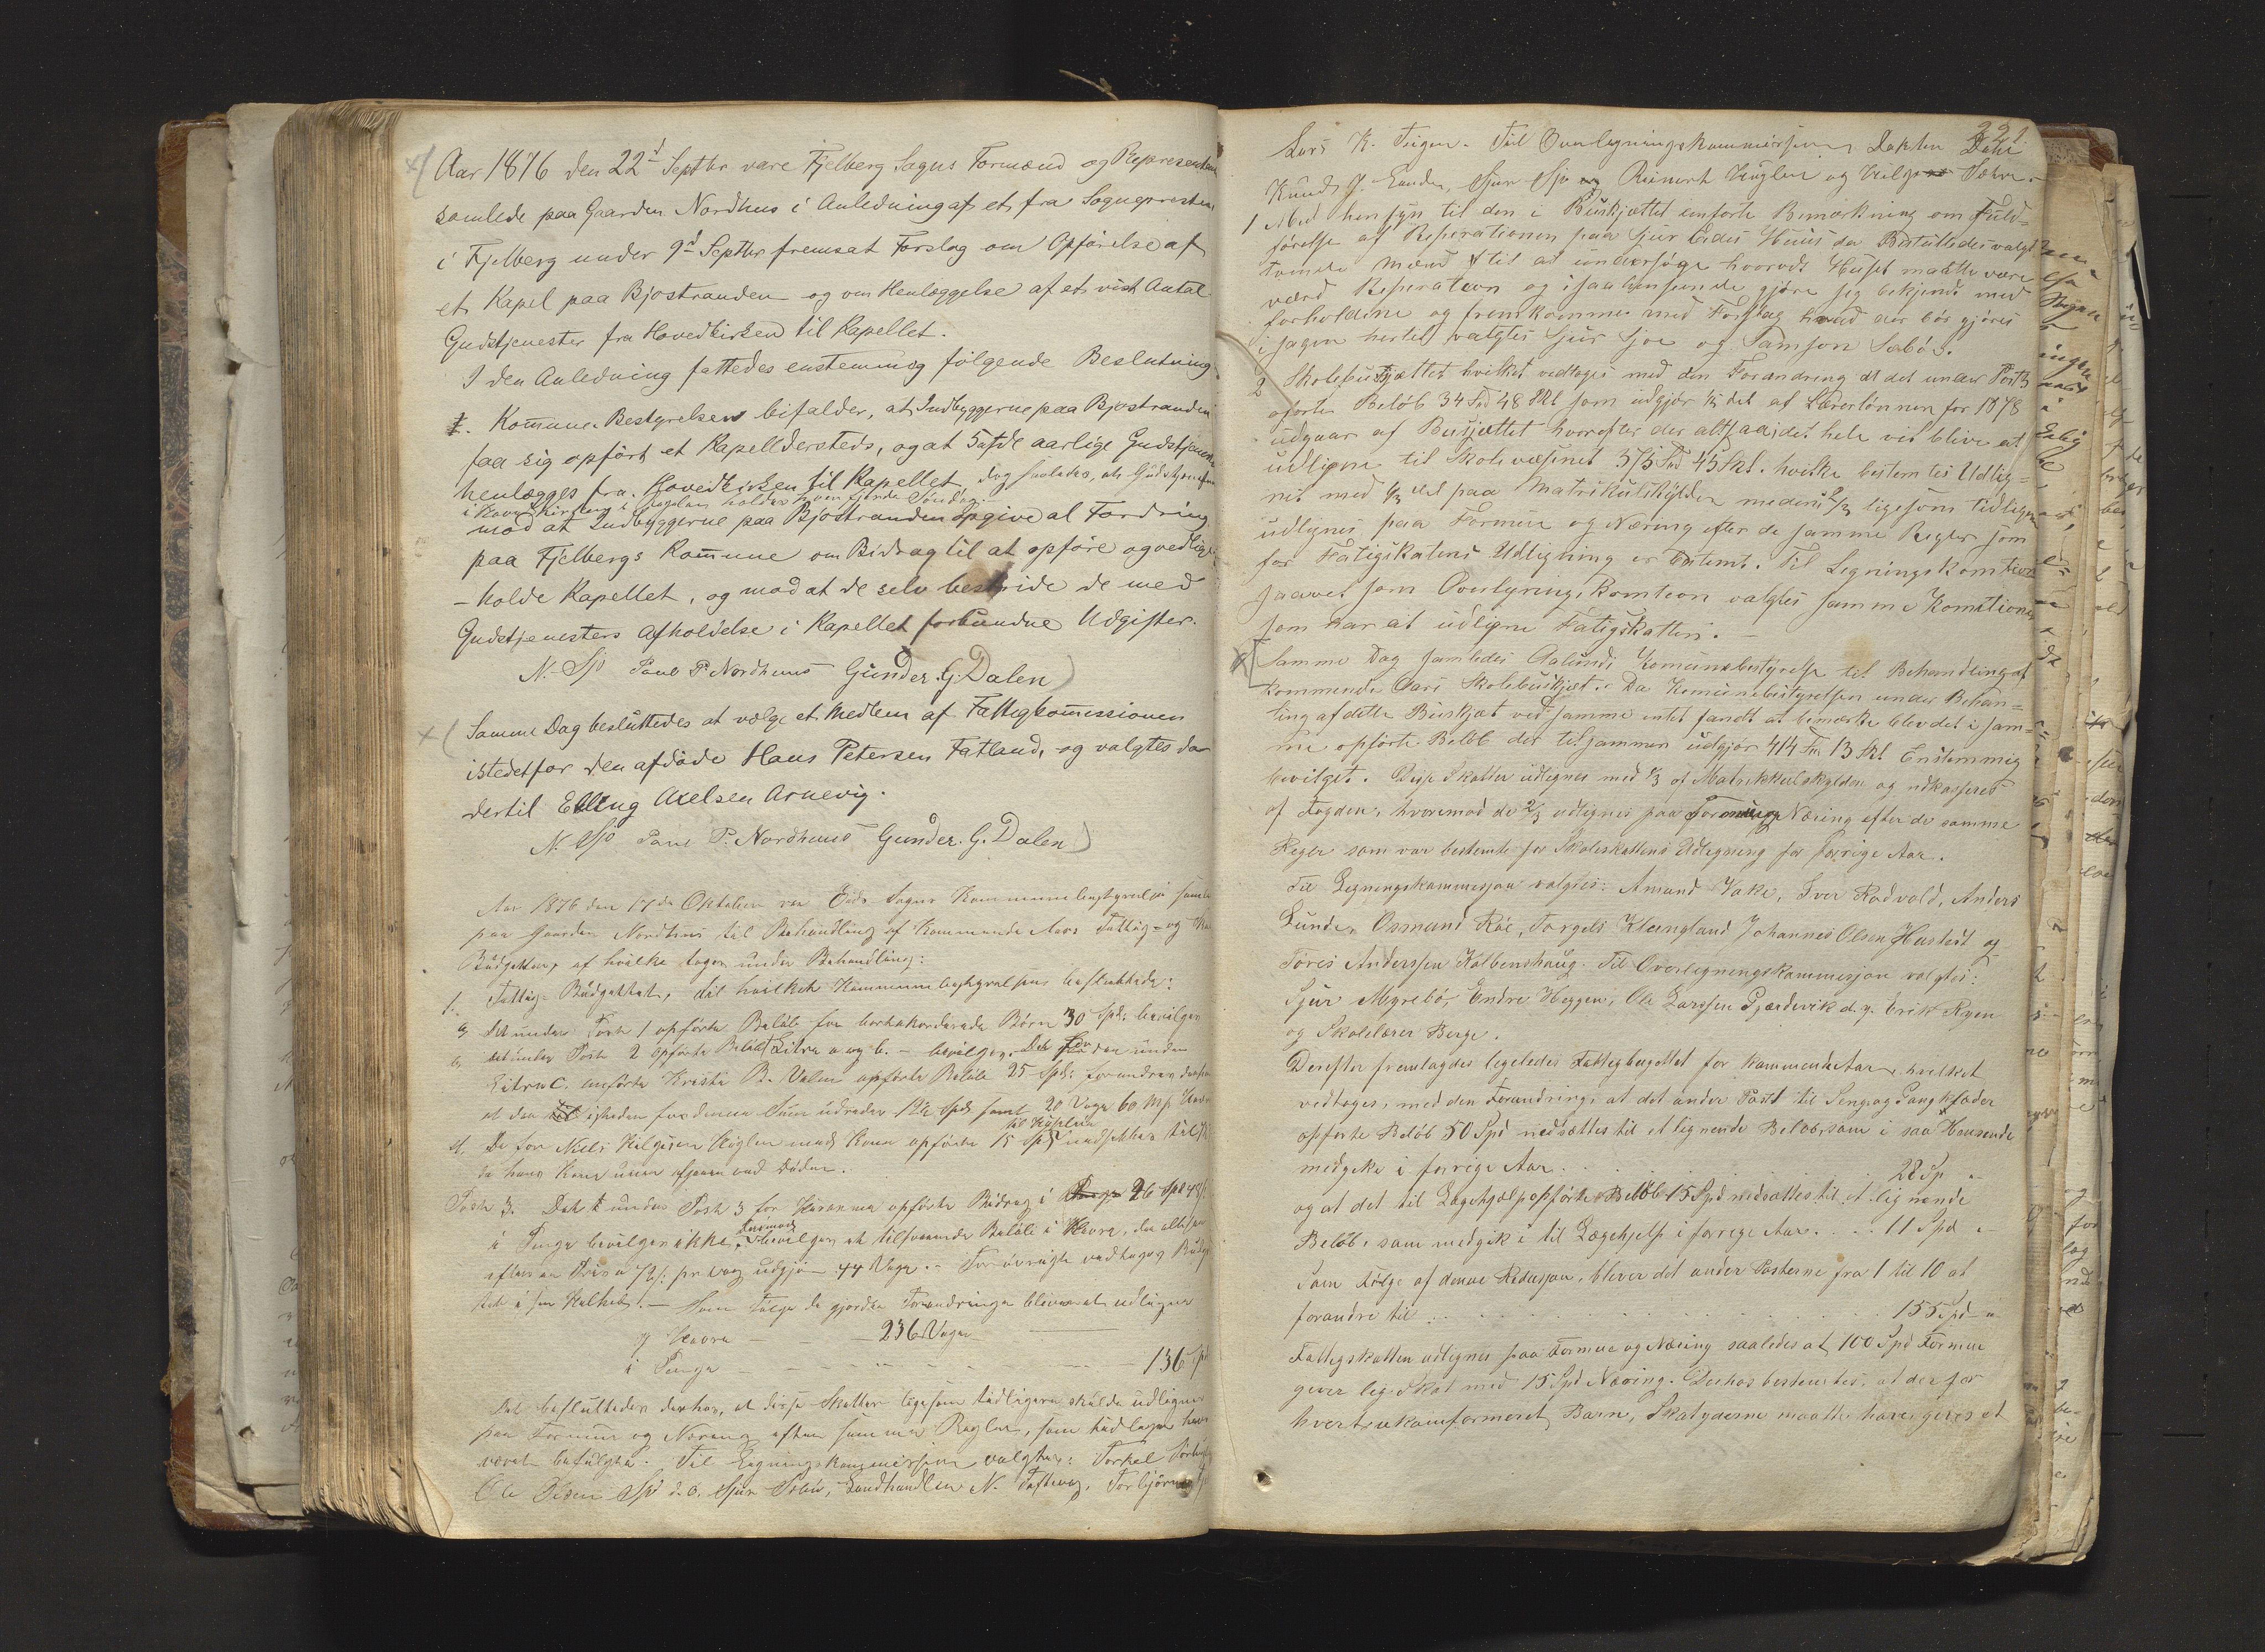 Aar 1876 den 22d Septbr vare Fjelberg Sogns Formænd og Repræsentan
samlede paa Gaarden Nordhus i Anledning af et fra Sognepresten
i Fjelberg under 9d Septbr fremsat Forslag om Opførelse af
et Kapel paa Bjostranden og om Henlæggelse af et vist Antal
Gudstjenester fra Hovedkirken til Kapellet.
I den Anledning fattedes enstemmig følgende Beslutning.
Kommune-Bestyrelsen bifalder, at Indbyggerne paa Bjostranden
faa sig opført et Kapel dersteds, og at 5 af de aarlige Gudstjenester
henlægges fra Hovedkirken til Kapellet, dog saaledes, at Gudstjenesten
i Hovedkirken i Reglen holdes hver fjerde Søndag.
mod at Indbyggerne paa Bjostranden opgive al Fordring
paa Fjelbergs Kommune om Bidrag til at opføre og vedlige
-holde Kapellet, og mod at de selv bestride de med
Gudstjenesters Afholdelse i Kapellet forbundne Udgifter.
N. Sjo Paul P. Nordhuus Gunder. G. Dalen
Samme Dag besluttedes at vælge et Medlem af Fattigkommissionen
istedetfor den afdøde Hans Petersen Fatland, og valgtes da
dertil Elling Axelsen Arnevig.
N. Sjo Paul P. Nordhuus Gunder. G. Dalen
Aar 1876 den 17de Oktober var Eids Sogns Kommunebestyrelse samlet
paa Gaarden Nordhus til Behandling af Kommende Aars Fattig- og
Budgetter, af hvilke toges under Behandling:
1. Fattig-Budgettet, til hvilket Kommunebestyrelsen besluttede:
a, det under Post 1 opførte Beløb for bortakkorderede Børn 30 Spd: bevilges
det under Post 2 opførte Beløb Litra a og b. - bevilges. Det under
Litra C. anførte Krista B. Valen opførte Beløb 25 Spd: forandres
at der istedet for denne Sum udredes 12½ Spd samt 20 Voger 60 Mk
d. De for Niels Helgesen Høglen med Kone opførte 15 Spd til Husleie nedsættes til
da hans Kone nu er afgaaen ved Døden.
Post 3. Det under Post 3 for opførte Bidrag i 26 Spd 48
i Penge bevilges ikke, derimod bevilges et tilsvarende Beløb i Havre, der
efter en Pris a 72 s. pr Vog udgjør 44 Voger. - Forøvrigt vedtoges Budget
tet i sin Helhed. - Som Følge de gjordte Forandringer bliver at udlignes
I Havre - - - 236 Voger
i Penge - - - 136 Spd
Det besluttedes derhos, at disse Skatter ligesom tidligere skulde udlignes
paa Formue og Næring efter samme Regler, som tidligere have
været befulgte. Til Ligningskommission valgtes: Torkel
Ole Olsen Sjo d.o. Sjur Sæbø, Landhandler N. Tofteveg, Torbjørn
221
Lars K. Teigen. Til Overlegningskommissjon, Dokter Dahl
Knud J. Lunden, Sjur Sjo Reinert Høglen og Helge Sæbøe.
1 Med hensyn til den i Buskjættet anførte Bemærkning om Fuld-
førelse af Reperationen paa Sjur Eides Huus da Besluttedes valgt
tvende Mænd til at undersøge hvorvidt Huset maatte være
værd Reperation og i saa henseende gjøre sig bekjendt med
forholdene og fremkomme med Forslag hvad der bør gjøres
i sagen hertil valgtes Sjur Sjoe og Samson Sæbø.
2 Skolebusjættet hvilket vedtages med den Forandring at det under Post 3
opførte Beløb 34 Spd 48 Skl som udgjør ½ del af Lærerlønnen for 1878
udgaar af Busjættet hvorefter der altsaa det hele vil blive at
udligne til Skolevæsenet 375 Spd 45 Skl. hvilke bestemtes Udlig-
net med 1/3 del paa Matrikulskylden medens 2/3 ligesom tidligere
udlignes paa Formue og Næring efter de samme Regler som
for Fatigskatens Udligning er bestemt. Til Legningskomtion
saavel som Overligningskomtion valgtes samme Komitioner
som har at udligne Fatigskatten. -
Samme Dag samledes Ølunds Komunebestyrelse til Behandling af
kommende Aars Skolebuskjæt. Da Komunebestyrelsen under Behan-
ling af dette Buskjæt ved samme intet fandt at bemærke blev det i sam-
me opførte Beløb der tilsammen udgjør 414 Spd 13 Skl Enstemmig
bevilget. Disse Skatter udlignes med 1/3 af Matrikkulskylden og indkasseres
af Fogden, hvorimod de 2/3 udlignes paa Formue og Næring efter de samme
Regler som var bestemte for Skoleskattens Udligning for forrige Aar.
Til Ligningskommission valgtes: Amund Vake, Iver Rødvold, Anders
Lunde, Osmund Røe, Torgels Klungland Johannes Olsen Hustedt og
Tøres Anderssen Kalbenshaug. Til Overligningskommission valgtes:
Sjur Myrebø, Endre Heggen, Ole Larssen Gjærdevik d.y. Erik Ryen
og Skolelærer Berge.
Derefter fremlagdes ligeledes Fattigbugettet for kommende Aar, hvilket
vedtoges, med den Forandring, at det under Post til Seng og Gangklæder
opførte Beløb 50 Spd nedsættes til et lignende Beløb, som i saa Henseende
medgik i forrige Aar . . . . . . 28 Sp "
og at det til Lægehjælp opførte Beløb 15 Spd nedsattes til et lignende
Beløb, som medgik i til Lægehjelp i forrige Aar . . . . 11 Spd "
Som Følge af denne Reduksjon, bliver det under Posterne fra 1 til 10 at
forandre til . . . . . . . 155 Spd "
Fattigskatten udlignes paa Formue og Næring saaledes at 100 Spd Formue
giver lig Skat med 15 Spd Næring. Derhos bestemtes, at der for
hvert ukonfirmeret Barn, Skatyderne maatte have, gives et